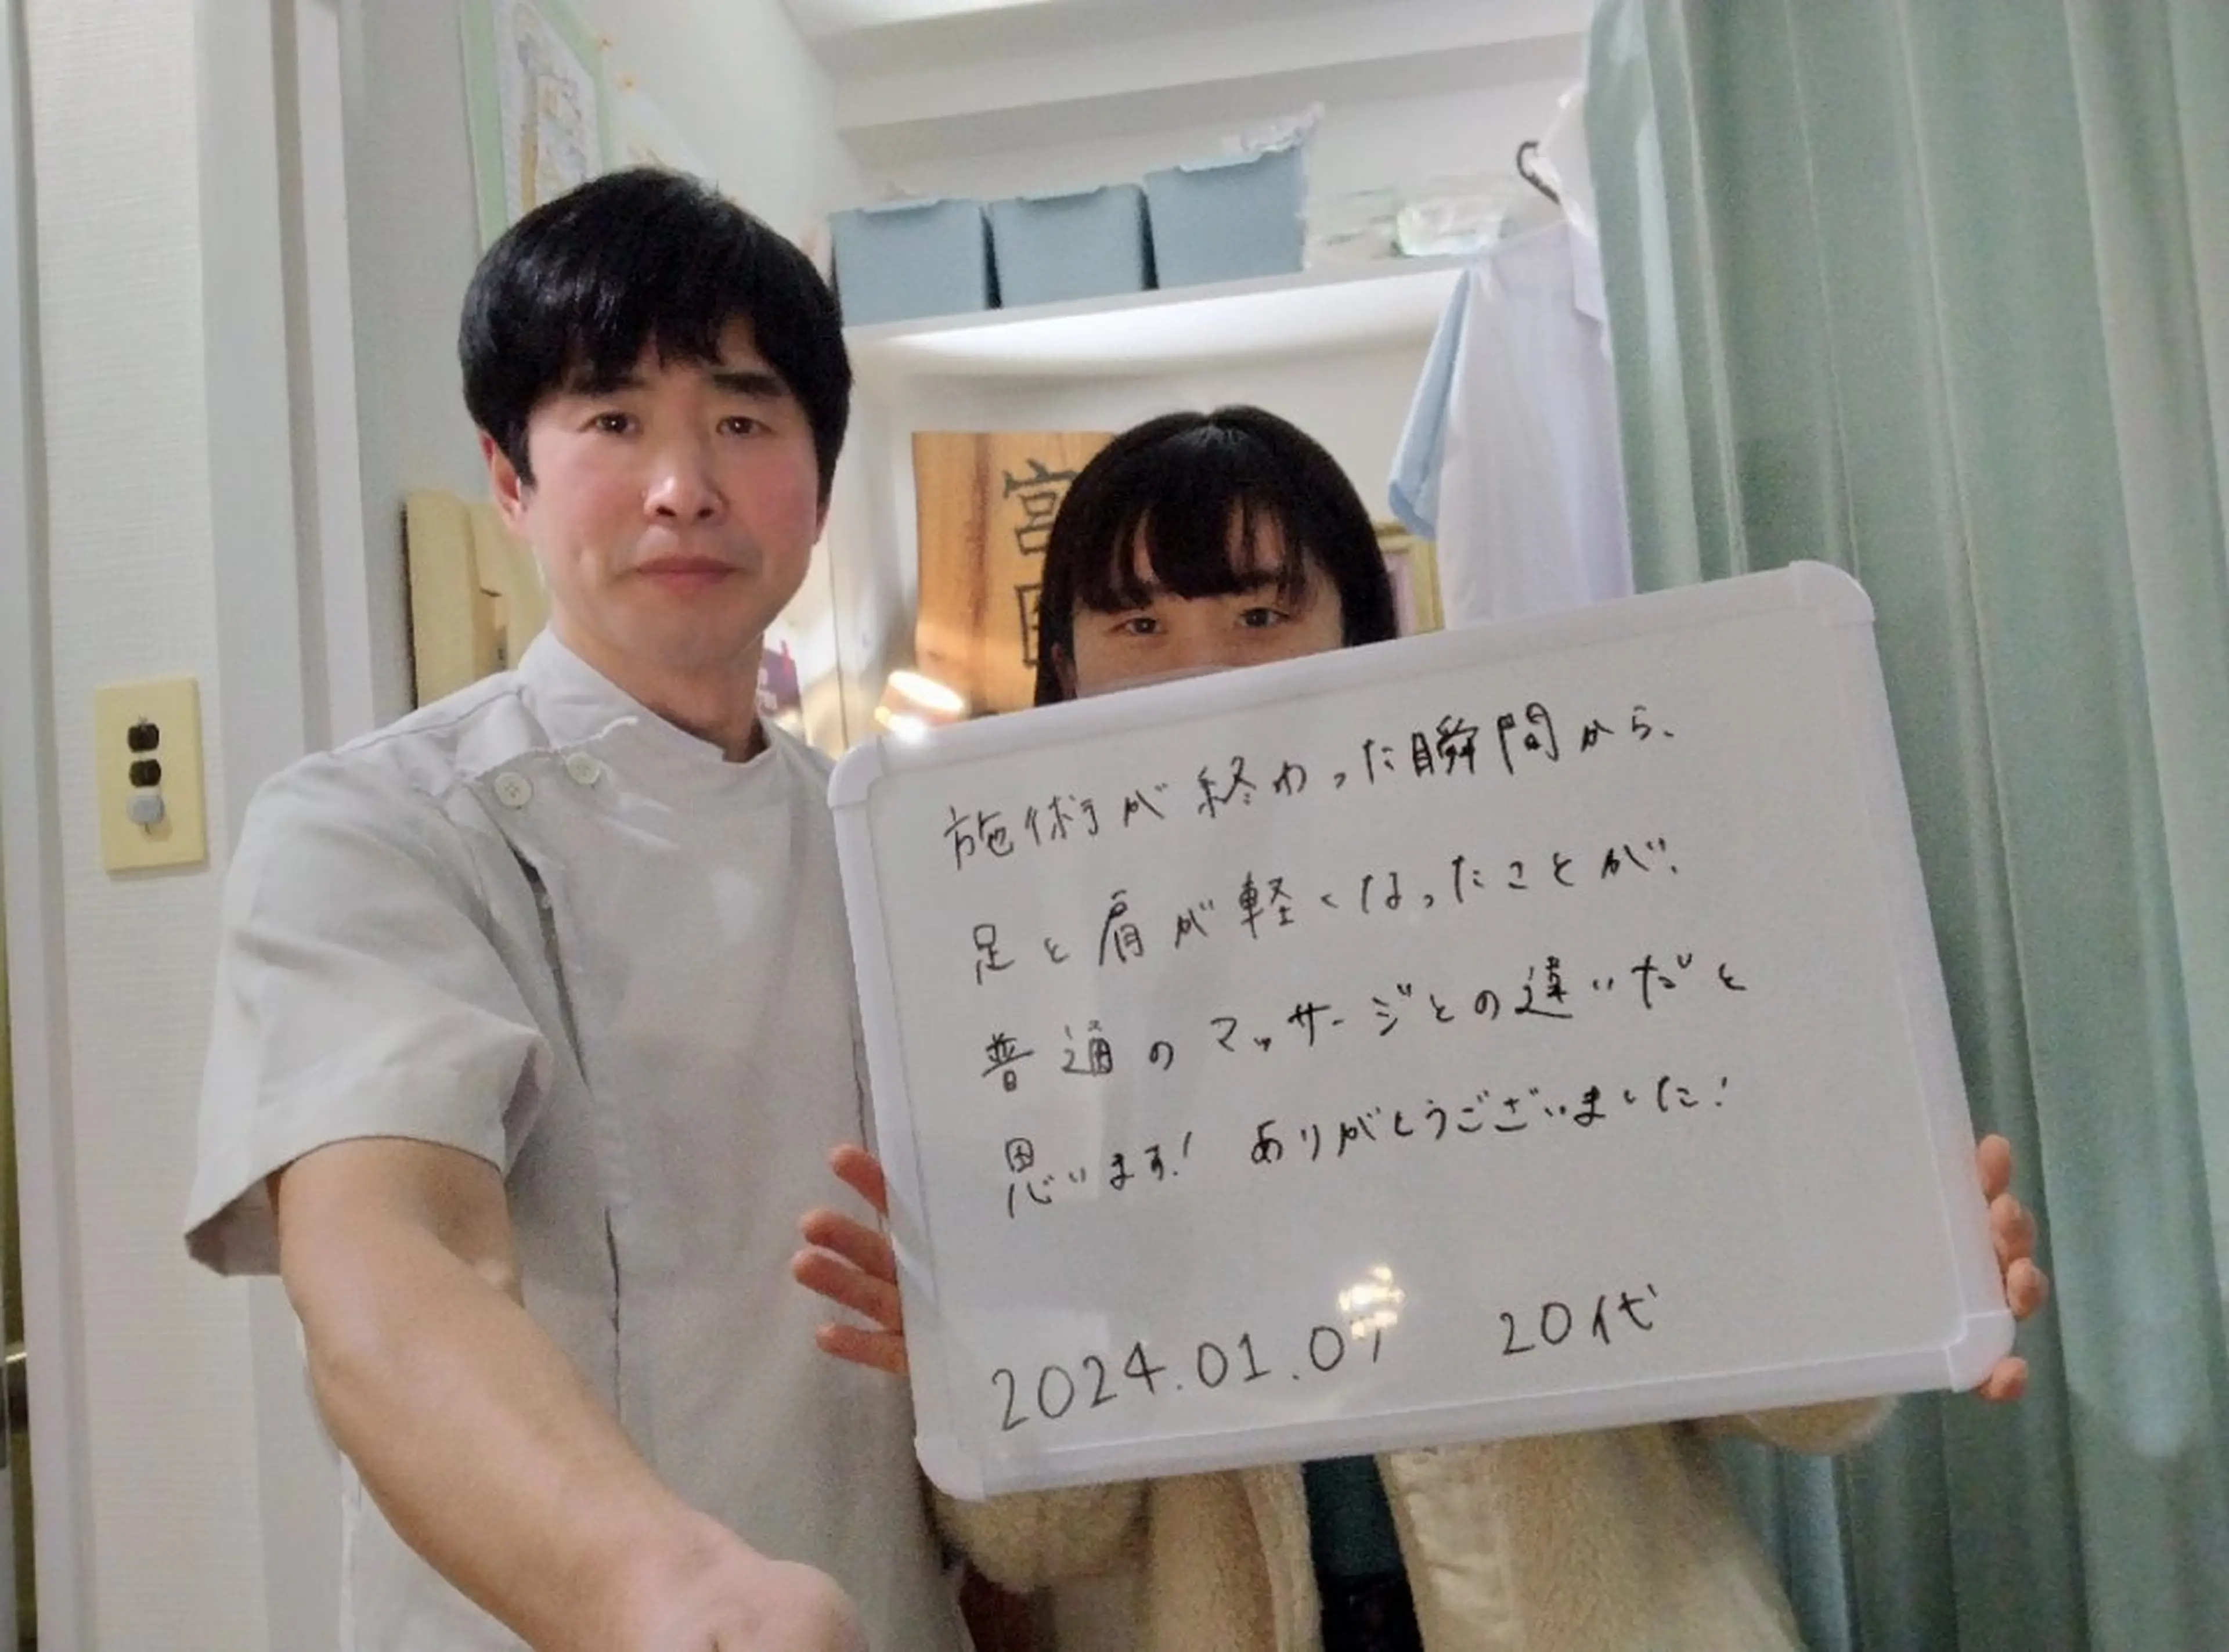 施術が終わった瞬間から、
足と肩が軽くなったことが、
普通のマッサージとの違いだと
思います! ありがとうございました!
2024.01.07 20代
宮